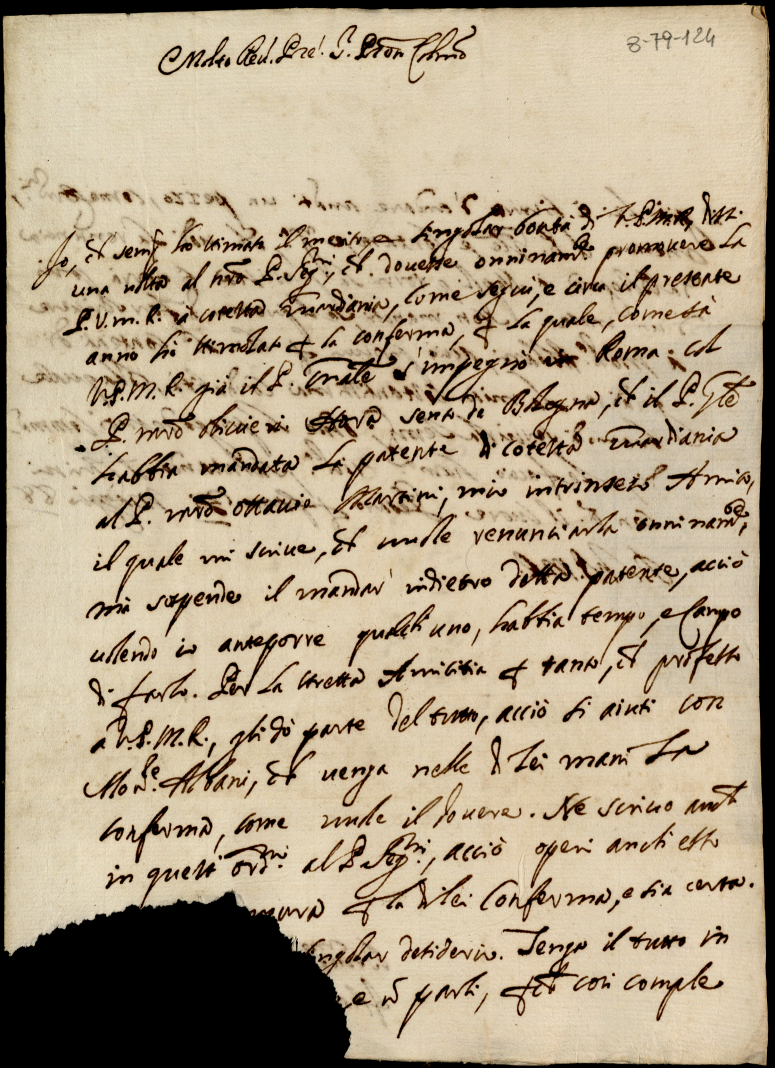 8-79-124
Molto Reu. Pre. P. Pron Col.mo
Io, ch sempre hò stimata il merito e singolar bontà di V.P.M.R., dissi
una uolta al nro P. Seg.ri, ch douesse onninam.te promuouere la
P.V.M.R. à cotesta Guardiania, come seguì, e circa il presente
anno hò stimolato p la conferma, p la quale, come sà
V.P.M.R. già il P. Gnale s'impegnò in Roma col
P. mro Oliuieri. Hora sento da Bologna, ch il P. Gle
habbia mandata la patente di cotesta Guardiania
al P. mro Ottauio Martini, mio intrinseco Amico,
il quale mi scriue, ch uuole renunciarla onninam.te,
mà sospende il mandar indietro detta patente, acciò
uolendo io anteporre qualch uno, habbia tempo, e Campo
di farlo. Per la stretta Amicitia p tanto, ch professo
a V.P.M.R., gli dò parte del tutto, acciò si aiuti con
Mons.re Albani, ch uenga nelle di lei mani la
conferma, come uuole il douere. Ne scriuo anch
in quest' ord.ri al P. Seg.ri, acciò operi anch esso
p la di lei Conferma, e sia certa.
singolar desiderio. Tenga il tutto in
e ñ parli, pch così comple